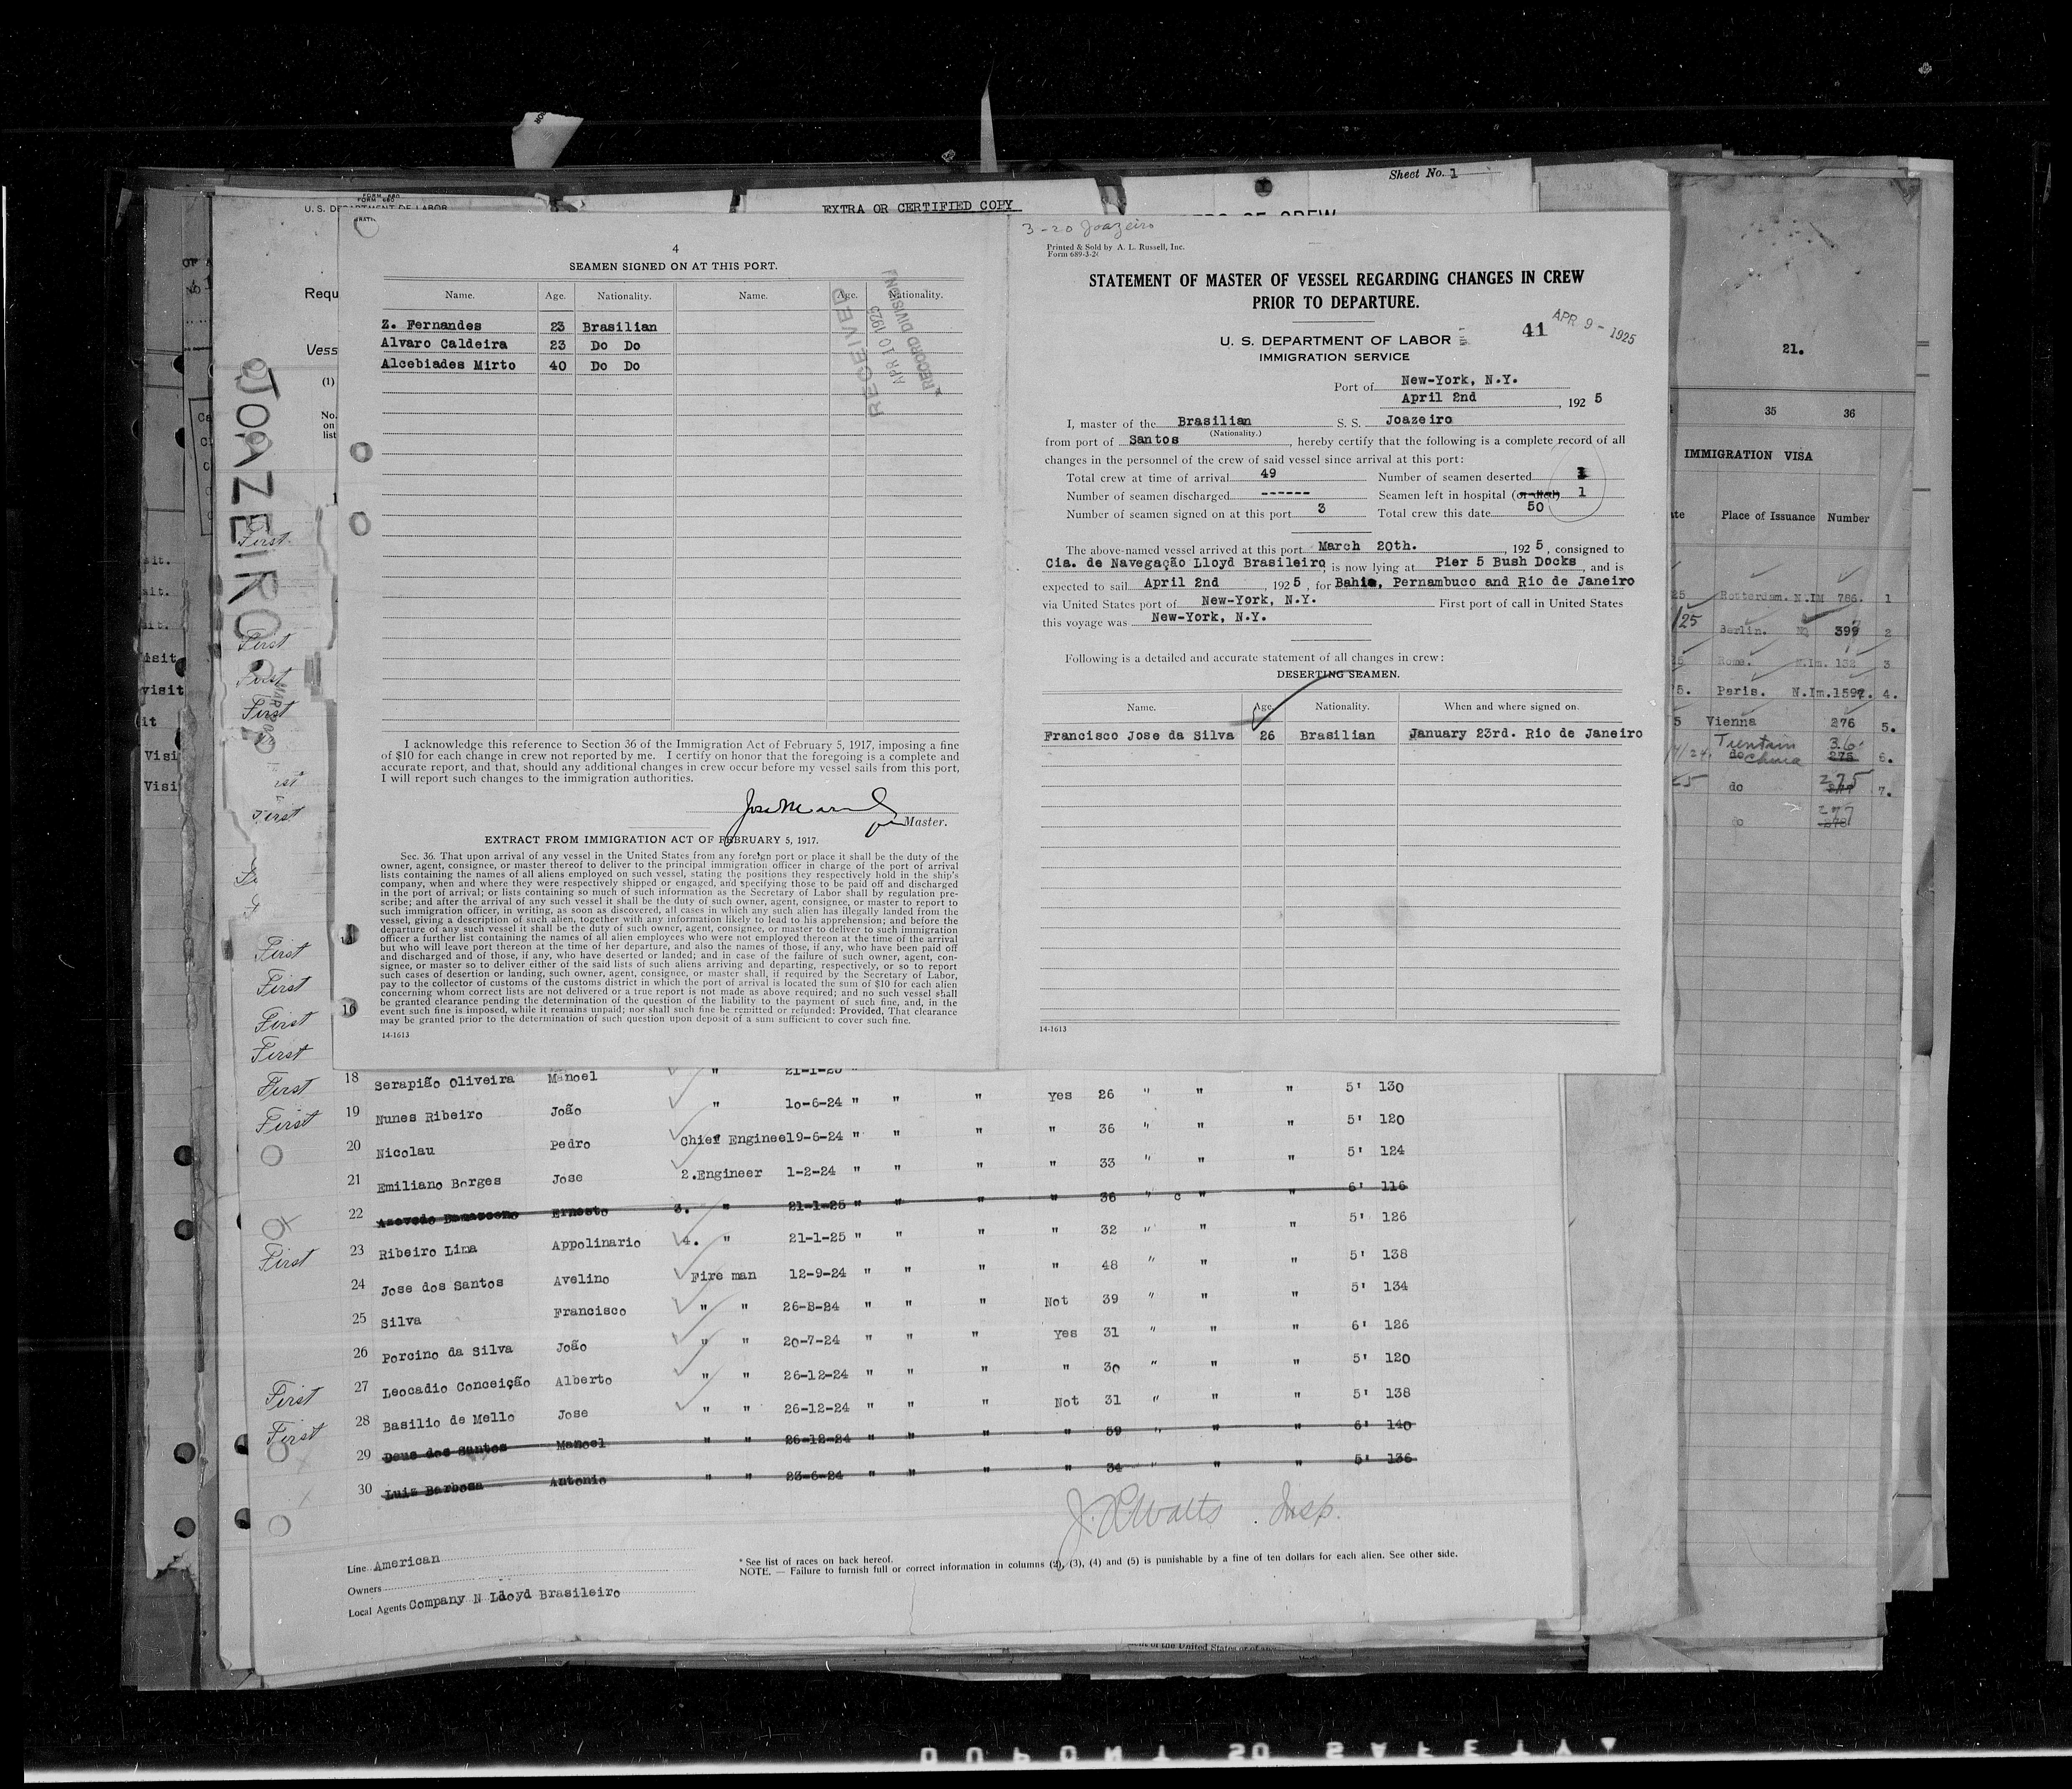 Sheet No. 1
FORM 680
U. S. DEPARTMENT OF LABOR
EXTRA OR CERTIFIED COPY
OF CREW
Requ
Vess
(1)
No.
on
list
JOAZEIRO
4
SEAMEN SIGNED ON AT THIS PORT.
Name. Age. Nationality. Name. Age. Nationality.
Z. Fernandes 23 Brasilian
Alvaro Caldeira 23 Do Do
Alcebiades Mirto 40 Do Do
RECEIVED
APR 10 1925
RECORD DIVISION
I acknowledge this reference to Section 36 of the Immigration Act of February 5, 1917, imposing a fine
of $10 for each change in crew not reported by me. I certify on honor that the foregoing is a complete and
accurate report, and that, should any additional changes in crew occur before my vessel sails from this port,
I will report such changes to the immigration authorities.
Master.
EXTRACT FROM IMMIGRATION ACT OF FEBRUARY 5, 1917.
Sec. 36. That upon arrival of any vessel in the United States from any foreign port or place it shall be the duty of the
owner, agent, consignee, or master thereof to deliver to the principal immigration officer in charge of the port of arrival
lists containing the names of all aliens employed on such vessel, stating the positions they respectively hold in the ship's
company, when and where they were respectively shipped or engaged, and specifying those to be paid off and discharged
in the port of arrival; or lists containing so much of such information as the Secretary of Labor shall by regulation pre-
scribe; and after the arrival of any such vessel it shall be the duty of such owner, agent, consignee, or master to report to
such immigration officer, in writing, as soon as discovered, all cases in which any such alien has illegally landed from the
vessel, giving a description of such alien, together with any information likely to lead to his apprehension; and before the
departure of any such vessel it shall be the duty of such owner, agent, consignee, or master to deliver to such immigration
officer a further list containing the names of all alien employees who were not employed thereon at the time of the arrival
but who will leave port thereon at the time of her departure, and also the names of those, if any, who have been paid off
and discharged and of those, if any, who have deserted or landed; and in case of the failure of such owner, agent, con-
signee, or master so to deliver either of the said lists of such aliens arriving and departing, respectively, or so to report
such cases of desertion or landing, such owner, agent, consignee, or master shall, if required by the Secretary of Labor,
pay to the collector of customs of the customs district in which the port of arrival is located the sum of $10 for each alien
concerning whom correct lists are not delivered or a true report is not made as above required; and no such vessel shall
be granted clearance pending the determination of the question of the liability to the payment of such fine, and, in the
event such fine is imposed, while it remains unpaid; nor shall such fine be remitted or refunded: Provided, That clearance
may be granted prior to the determination of such question upon deposit of a sum sufficient to cover such fine.
14-1613
3-20 Joazeiro
Printed & Sold by A. L. Russell, Inc.
Form 689-3-2
STATEMENT OF MASTER OF VESSEL REGARDING CHANGES IN CREW
PRIOR TO DEPARTURE.
U. S. DEPARTMENT OF LABOR
IMMIGRATION SERVICE
41 APR 9 - 1925
Port of New-York, N.Y.
April 2nd, 192 5
I, master of the Brasilian S. S. Joazeiro
(Nationality.)
from port of Santos, hereby certify that the following is a complete record of all
changes in the personnel of the crew of said vessel since arrival at this port:
Total crew at time of arrival 49 Number of seamen deserted 1
Number of seamen discharged ------ Seamen left in hospital (or died) 1
Number of seamen signed on at this port 3 Total crew this date 50
The above-named vessel arrived at this port March 20th., 192 5, consigned to
Cia. de Navegação Lloyd Brasileiro, is now lying at Pier 5 Bush Docks, and is
expected to sail April 2nd, 192 5, for Bahia, Pernambuco and Rio de Janeiro
via United States port of New-York, N.Y. First port of call in United States
this voyage was New-York, N.Y.
Following is a detailed and accurate statement of all changes in crew:
DESERTING SEAMEN.
Name. Age. Nationality. When and where signed on.
Francisco Jose da Silva 26 Brasilian January 23rd. Rio de Janeiro
14-1613
21.
35 36
IMMIGRATION VISA
Place of Issuance Number
Rotterdam. N.IM 786. 1
Berlin. 399 2
Rome. N.Im. 132 3
Paris. N.Im. 1597. 4.
Vienna 276 5.
do 276 6.
do 275 7.
do 277
First
First
First
First
First
First
First
First
First
First
18 Serapião Oliveira Manoel " 21-1-25 "
First 19 Nunes Ribeiro João " 10-6-24 " " " Yes 26 " " " 5' 130
20 Nicolau Pedro Chief Enginee 19-6-24 " " " " 36 " " " 5' 120
21 Emiliano Borges Jose 2.Engineer 1-2-24 " " " " 33 " " " 5' 124
22 Azevedo Damasceno Ernesto 3. " 21-1-25 " " " " 36 " c " " 6' 116
First 23 Ribeiro Lima Appolinario 4. " 21-1-25 " " " " 32 " " " 5' 126
24 Jose dos Santos Avelino Fire man 12-9-24 " " " " 48 " " " 5' 138
25 Silva Francisco " " 26-8-24 " " " Not 39 " " " 5' 134
26 Porcino da Silva João " " 20-7-24 " " " Yes 31 " " " 6' 126
First 27 Leocadio Conceição Alberto " " 26-12-24 " " " " 30 " " " 5' 120
First 28 Basilio de Mello Jose " " 26-12-24 " " " Not 31 " " " 5' 138
29 Deus dos Santos Manoel " " 26-12-24 " " " " 59 " " " 6' 140
30 Luiz Barbosa Antonio " " 23-6-24 " " " " 34 " " " 5' 136
J. R. Watts. Insp.
Line American
Owners
Local Agents Company N Lloyd Brasileiro
* See list of races on back hereof.
NOTE. — Failure to furnish full or correct information in columns (2), (3), (4) and (5) is punishable by a fine of ten dollars for each alien. See other side.
DUPONT SO SAFETY